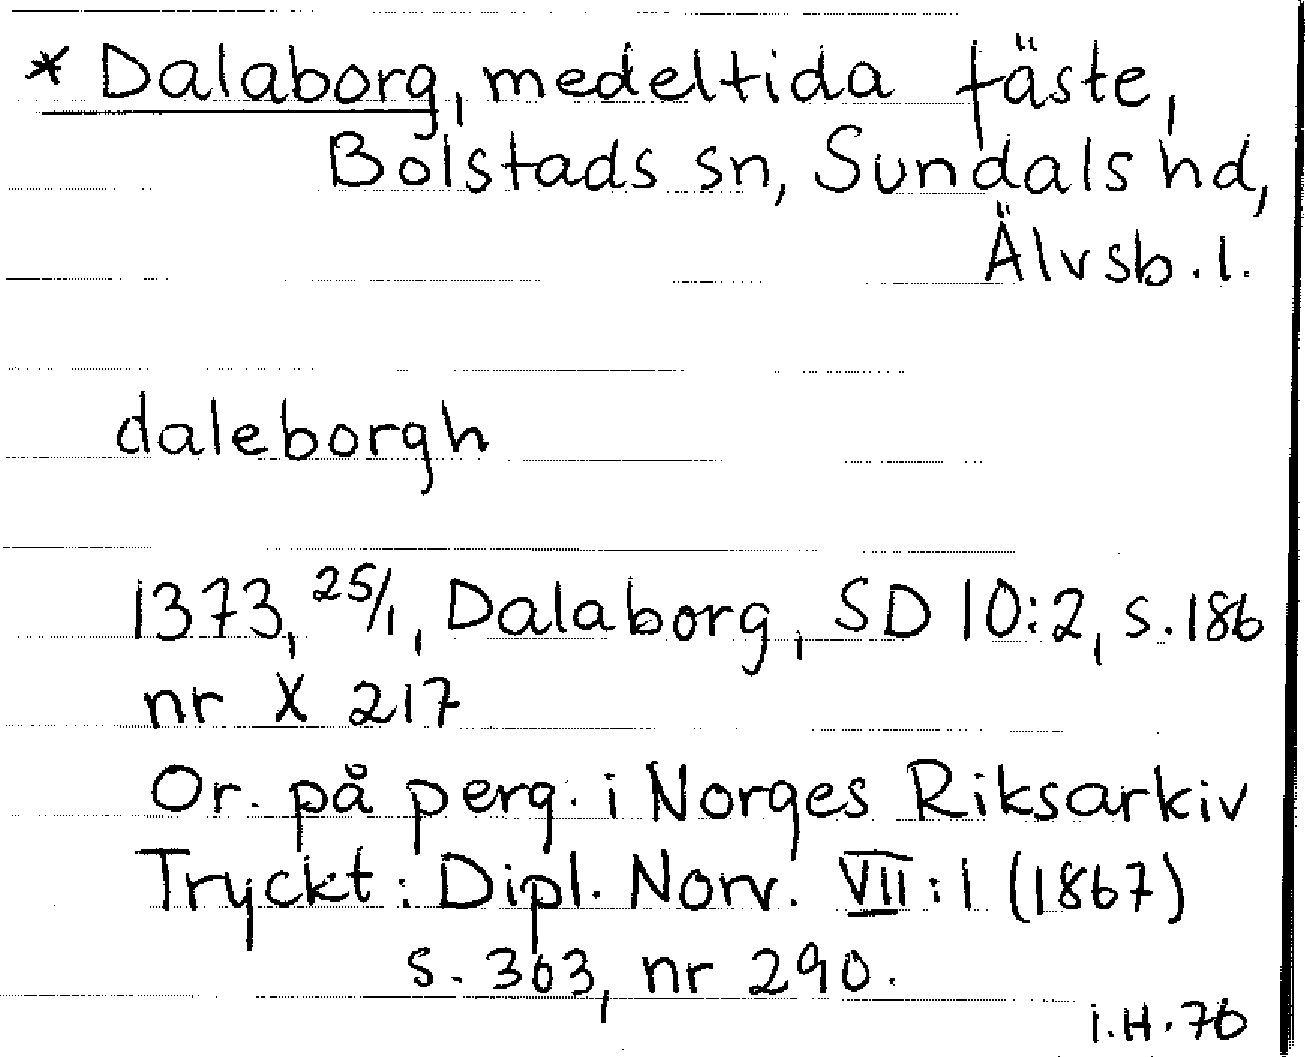 * Dalaborg, medeltida fäste,
Bolstads sn, Sundals hd,
Älvsb. l.
daleborgh
1373, 25/1, Dalaborg, SD 10:2, s. 186
nr X 217
Or. på perg. i Norges Riksarkiv
Tryckt: Dipl. Norv. VII: 1 (1867)
s. 303, nr 290.
I.H. 76